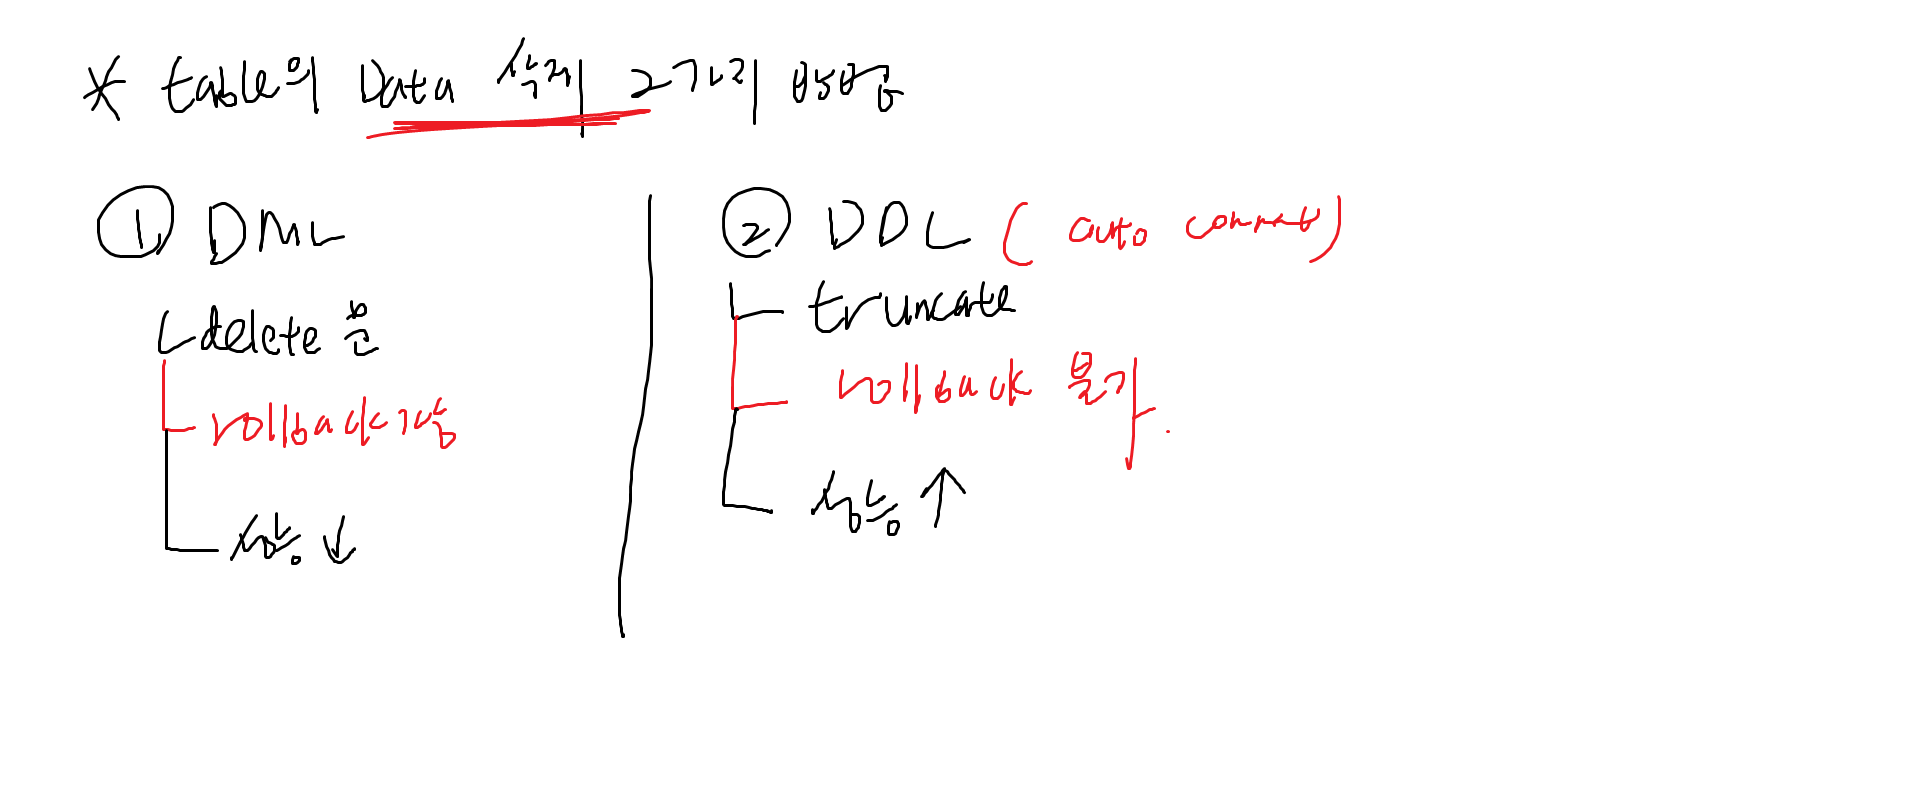 * table의 Data 삭제 2가지 방법
① DML
delete 문
rollback 가능
성능 ↓
② DDL (auto commit)
truncate
rollback 불가.
성능 ↑